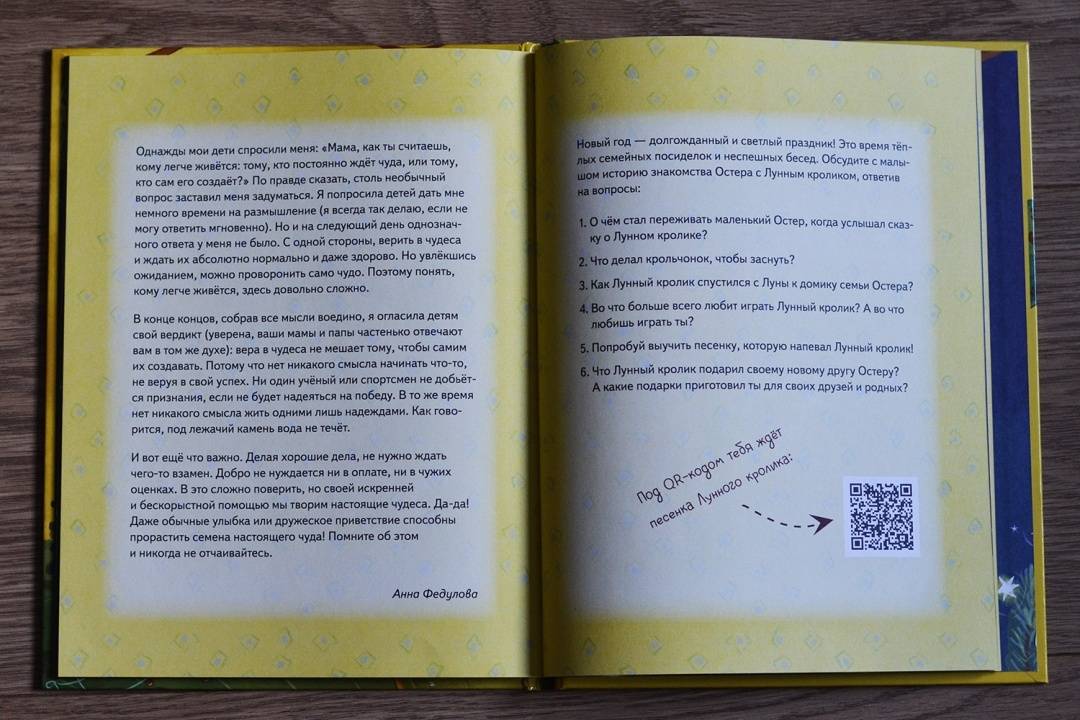 Однажды мои дети спросили меня: «Мама, как ты считаешь,
кому легче живётся: тому, кто постоянно ждёт чуда, или тому,
кто сам его создаёт?» По правде сказать, столь необычный
вопрос заставил меня задуматься. Я попросила детей дать мне
немного времени на размышление (я всегда так делаю, если не
могу ответить мгновенно). Но и на следующий день однознач-
ного ответа у меня не было. С одной стороны, верить в чудеса
и ждать их абсолютно нормально и даже здорово. Но увлёкшись
ожиданием, можно проворонить само чудо. Поэтому понять,
кому легче живётся, здесь довольно сложно.
В конце концов, собрав все мысли воедино, я огласила детям
свой вердикт (уверена, ваши мамы и папы частенько отвечают
вам в том же духе): вера в чудеса не мешает тому, чтобы самим
их создавать. Потому что нет никакого смысла начинать что-то,
не веруя в свой успех. Ни один учёный или спортсмен не добьёт-
ся признания, если не будет надеяться на победу. В то же время
нет никакого смысла жить одними лишь надеждами. Как гово-
рится, под лежачий камень вода не течёт.
И вот ещё что важно. Делая хорошие дела, не нужно ждать
чего-то взамен. Добро не нуждается ни в оплате, ни в чужих
оценках. В это сложно поверить, но своей искренней
и бескорыстной помощью мы творим настоящие чудеса. Да-да!
Даже обычные улыбка или дружеское приветствие способны
прорастить семена настоящего чуда! Помните об этом
и никогда не отчаивайтесь.
Анна Федулова
Новый год — долгожданный и светлый праздник! Это время тёп-
лых семейных посиделок и неспешных бесед. Обсудите с малы-
шом историю знакомства Остера с Лунным кроликом, ответив
на вопросы:
1. О чём стал переживать маленький Остер, когда услышал сказ-
ку о Лунном кролике?
2. Что делал крольчонок, чтобы заснуть?
3. Как Лунный кролик спустился с Луны к домику семьи Остера?
4. Во что больше всего любит играть Лунный кролик? А во что
любишь играть ты?
5. Попробуй выучить песенку, которую напевал Лунный кролик!
6. Что Лунный кролик подарил своему новому другу Остеру?
А какие подарки приготовил ты для своих друзей и родных?
Под QR-кодом тебя ждёт
песенка Лунного кролика: